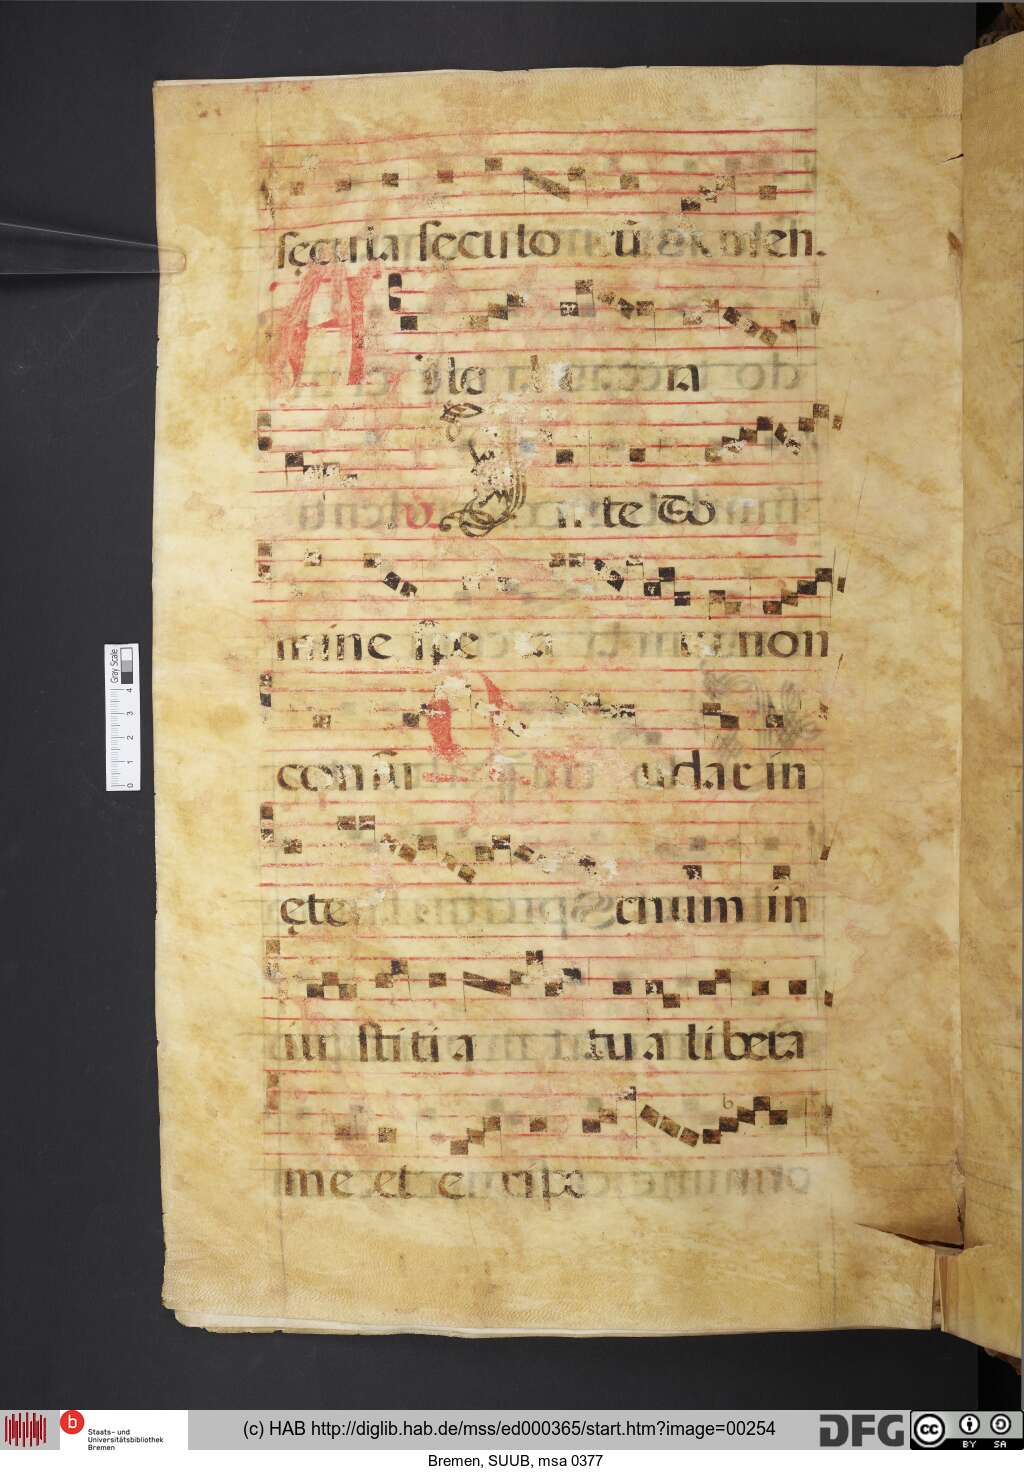 secula seculo rū amen.
A lle lu ia
℣. In te do
mine spe ra vi non
confun dar in
ete rnum in
iu stiti a tu a libera
me et e ripe
Gray Scale
0 1 2 3 4
Staats- und
Universitätsbibliothek
Bremen
(c) HAB http://diglib.hab.de/mss/ed000365/start.htm?image=00254
DFG
cc BY SA
Bremen, SUUB, msa 0377